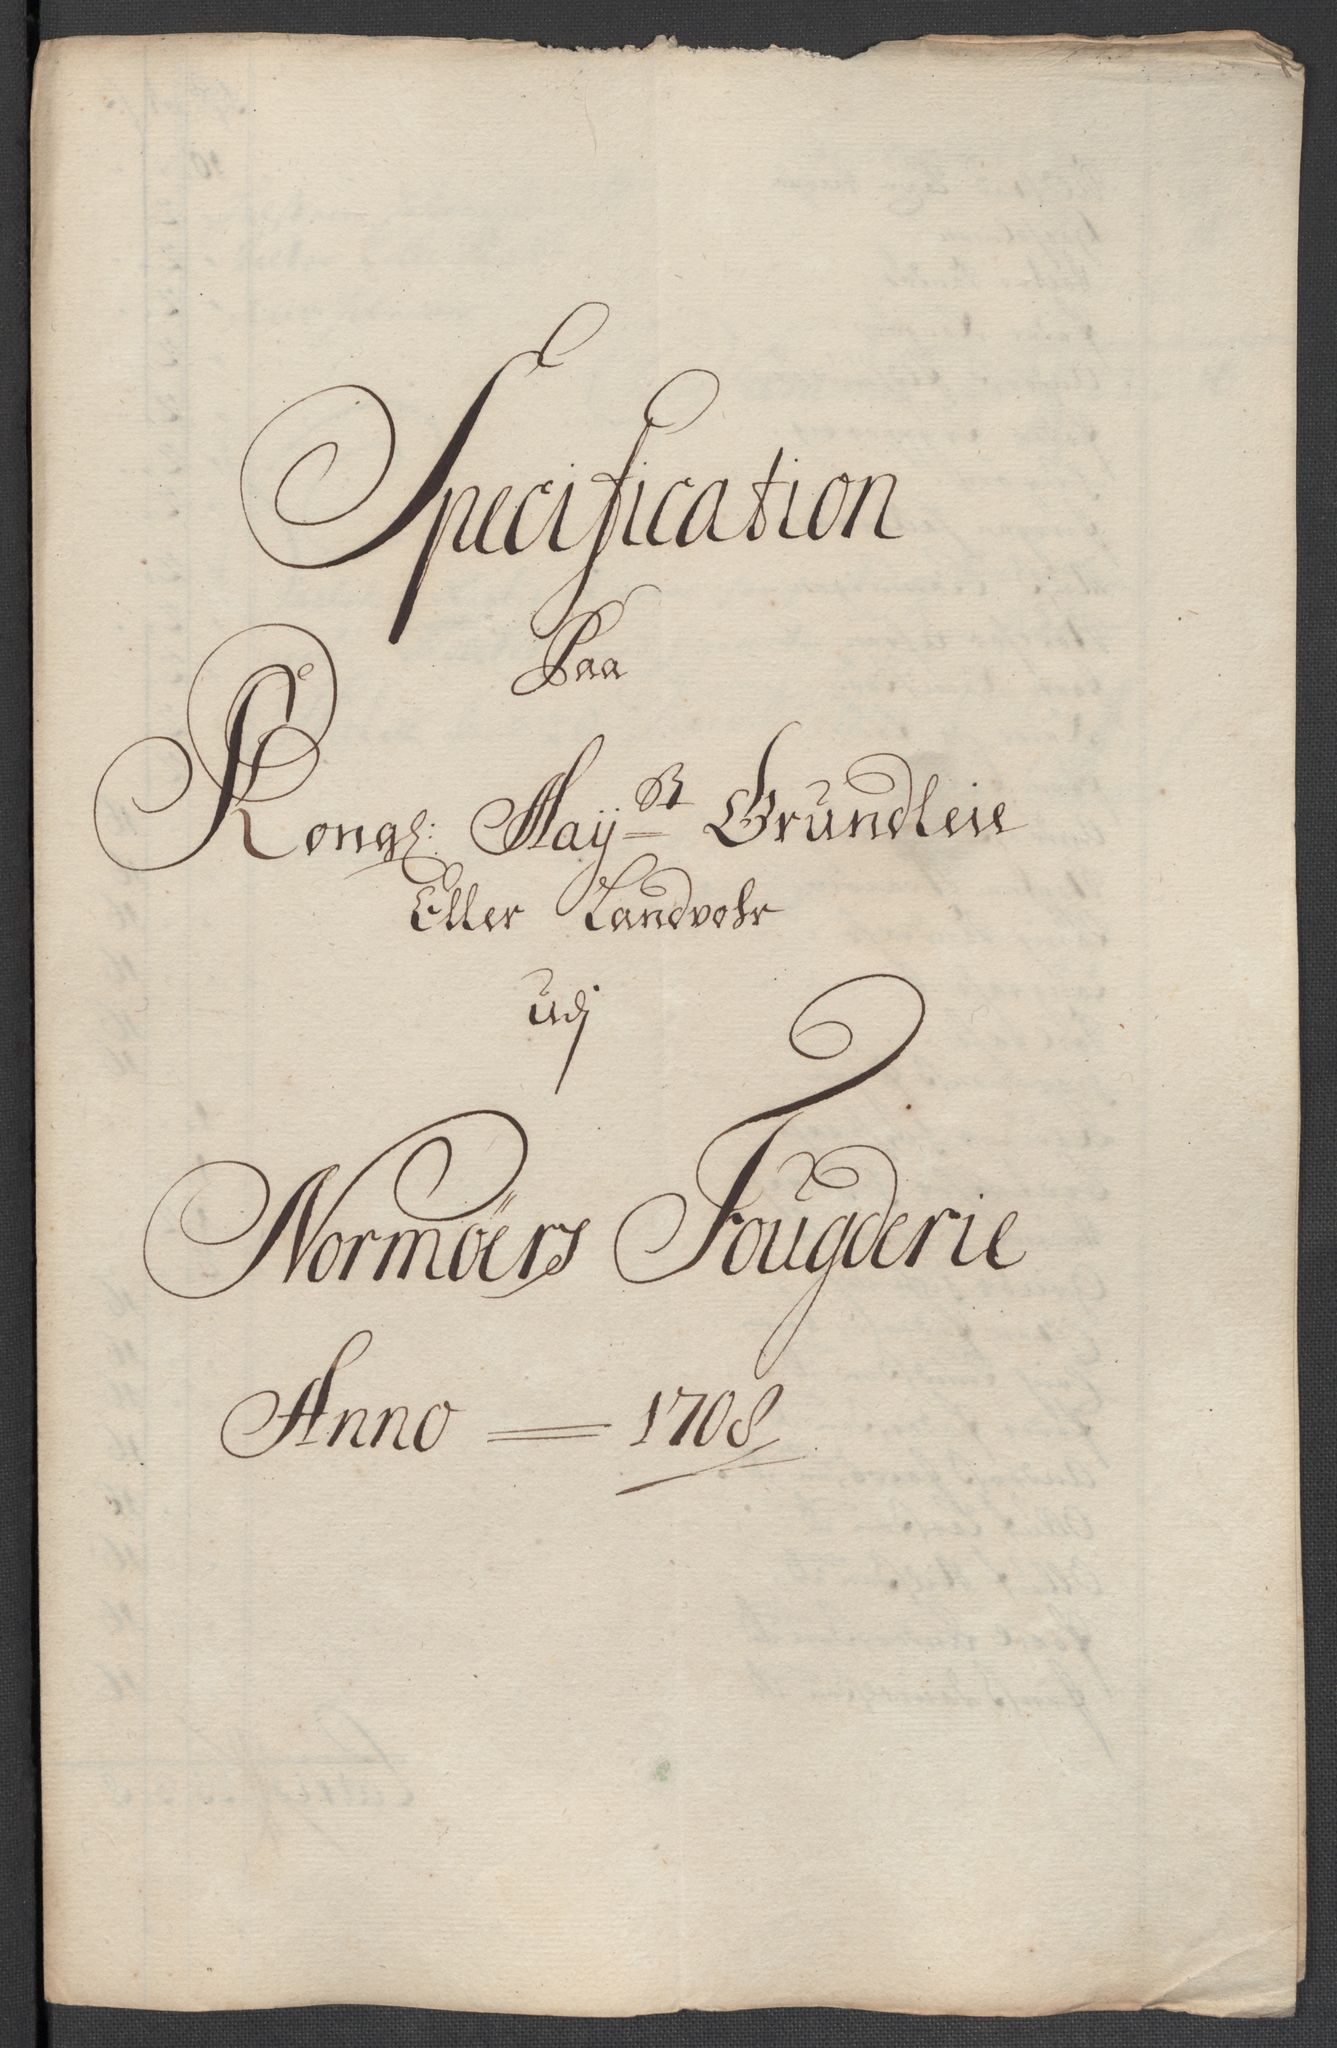 Specification
Paa
Kongl: Mayᵗˢ Grundleie
Eller Landvohr
udj
Normöers Fougderie
Anno = 1708